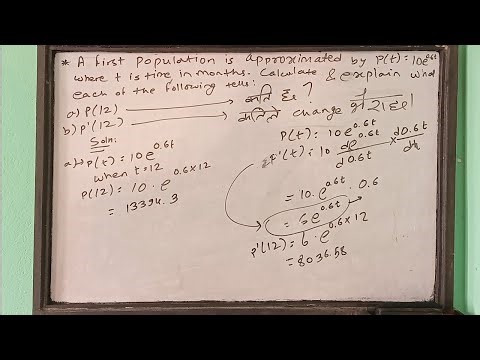 * A first population is approximated by P(t) = 10e^0.6t
where t is time in months. Calculate & explain what
each of the following tells:
a) P(12) → कति छ ?
b) P'(12) → कतिले change
Soln:
a) P(t) = 10e^0.6t
when t = 12
P(12) = 10 · e^0.6×12
= 13394.3
P(t) = 10e^0.6t
P'(t) = 10 de^0.6t/d0.6t × d0.6t/dt
= 10 · e^0.6t · 0.6
= 6e^0.6t
P'(12) = 6 · e^0.6×12
= 8036.58